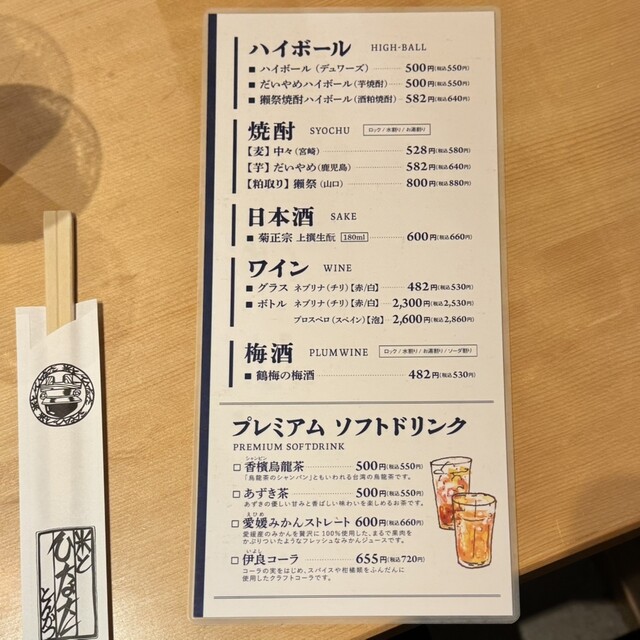 ハイボール HIGH-BALL
■ ハイボール（デュワーズ） 500円(税込550円)
■ だいやめハイボール(芋焼酎) 500円(税込550円)
■ 獺祭焼酎ハイボール(酒粕焼酎) 582円(税込640円)
焼酎 SYOCHU ロック / 水割り / お湯割り
【麦】中々(宮崎) 528円(税込580円)
【芋】だいやめ(鹿児島) 582円(税込640円)
【粕取り】獺祭(山口) 800円(税込880円)
日本酒 SAKE
■ 菊正宗 上撰生酛 180ml 600円(税込660円)
ワイン WINE
■ グラス ネブリナ(チリ)【赤/白】 482円(税込530円)
■ ボトル ネブリナ(チリ)【赤/白】 2,300円(税込2,530円)
プロスペロ(スペイン)【泡】 2,600円(税込2,860円)
梅酒 PLUMWINE ロック / 水割り / お湯割り / ソーダ割り
■ 鶴梅の梅酒 482円(税込530円)
プレミアム ソフトドリンク
PREMIUM SOFTDRINK
シャンピン
□ 香檳烏龍茶 500円(税込550円)
「烏龍茶のシャンパン」ともいわれる台湾の烏龍茶です。
□ あずき茶 500円(税込550円)
あずきの優しい甘みと香ばしい味わいを楽しめるお茶です。
えひめ
□ 愛媛みかんストレート 600円(税込660円)
愛媛産のみかんを贅沢に100%使用した、まるで果肉を
かぶりついたようなフレッシュなみかんジュースです。
いよし
□ 伊良コーラ 655円(税込720円)
コーラの実をはじめ、スパイスや柑橘類をふんだんに
使用したクラフトコーラです。
米と
ひなた
とんかつ